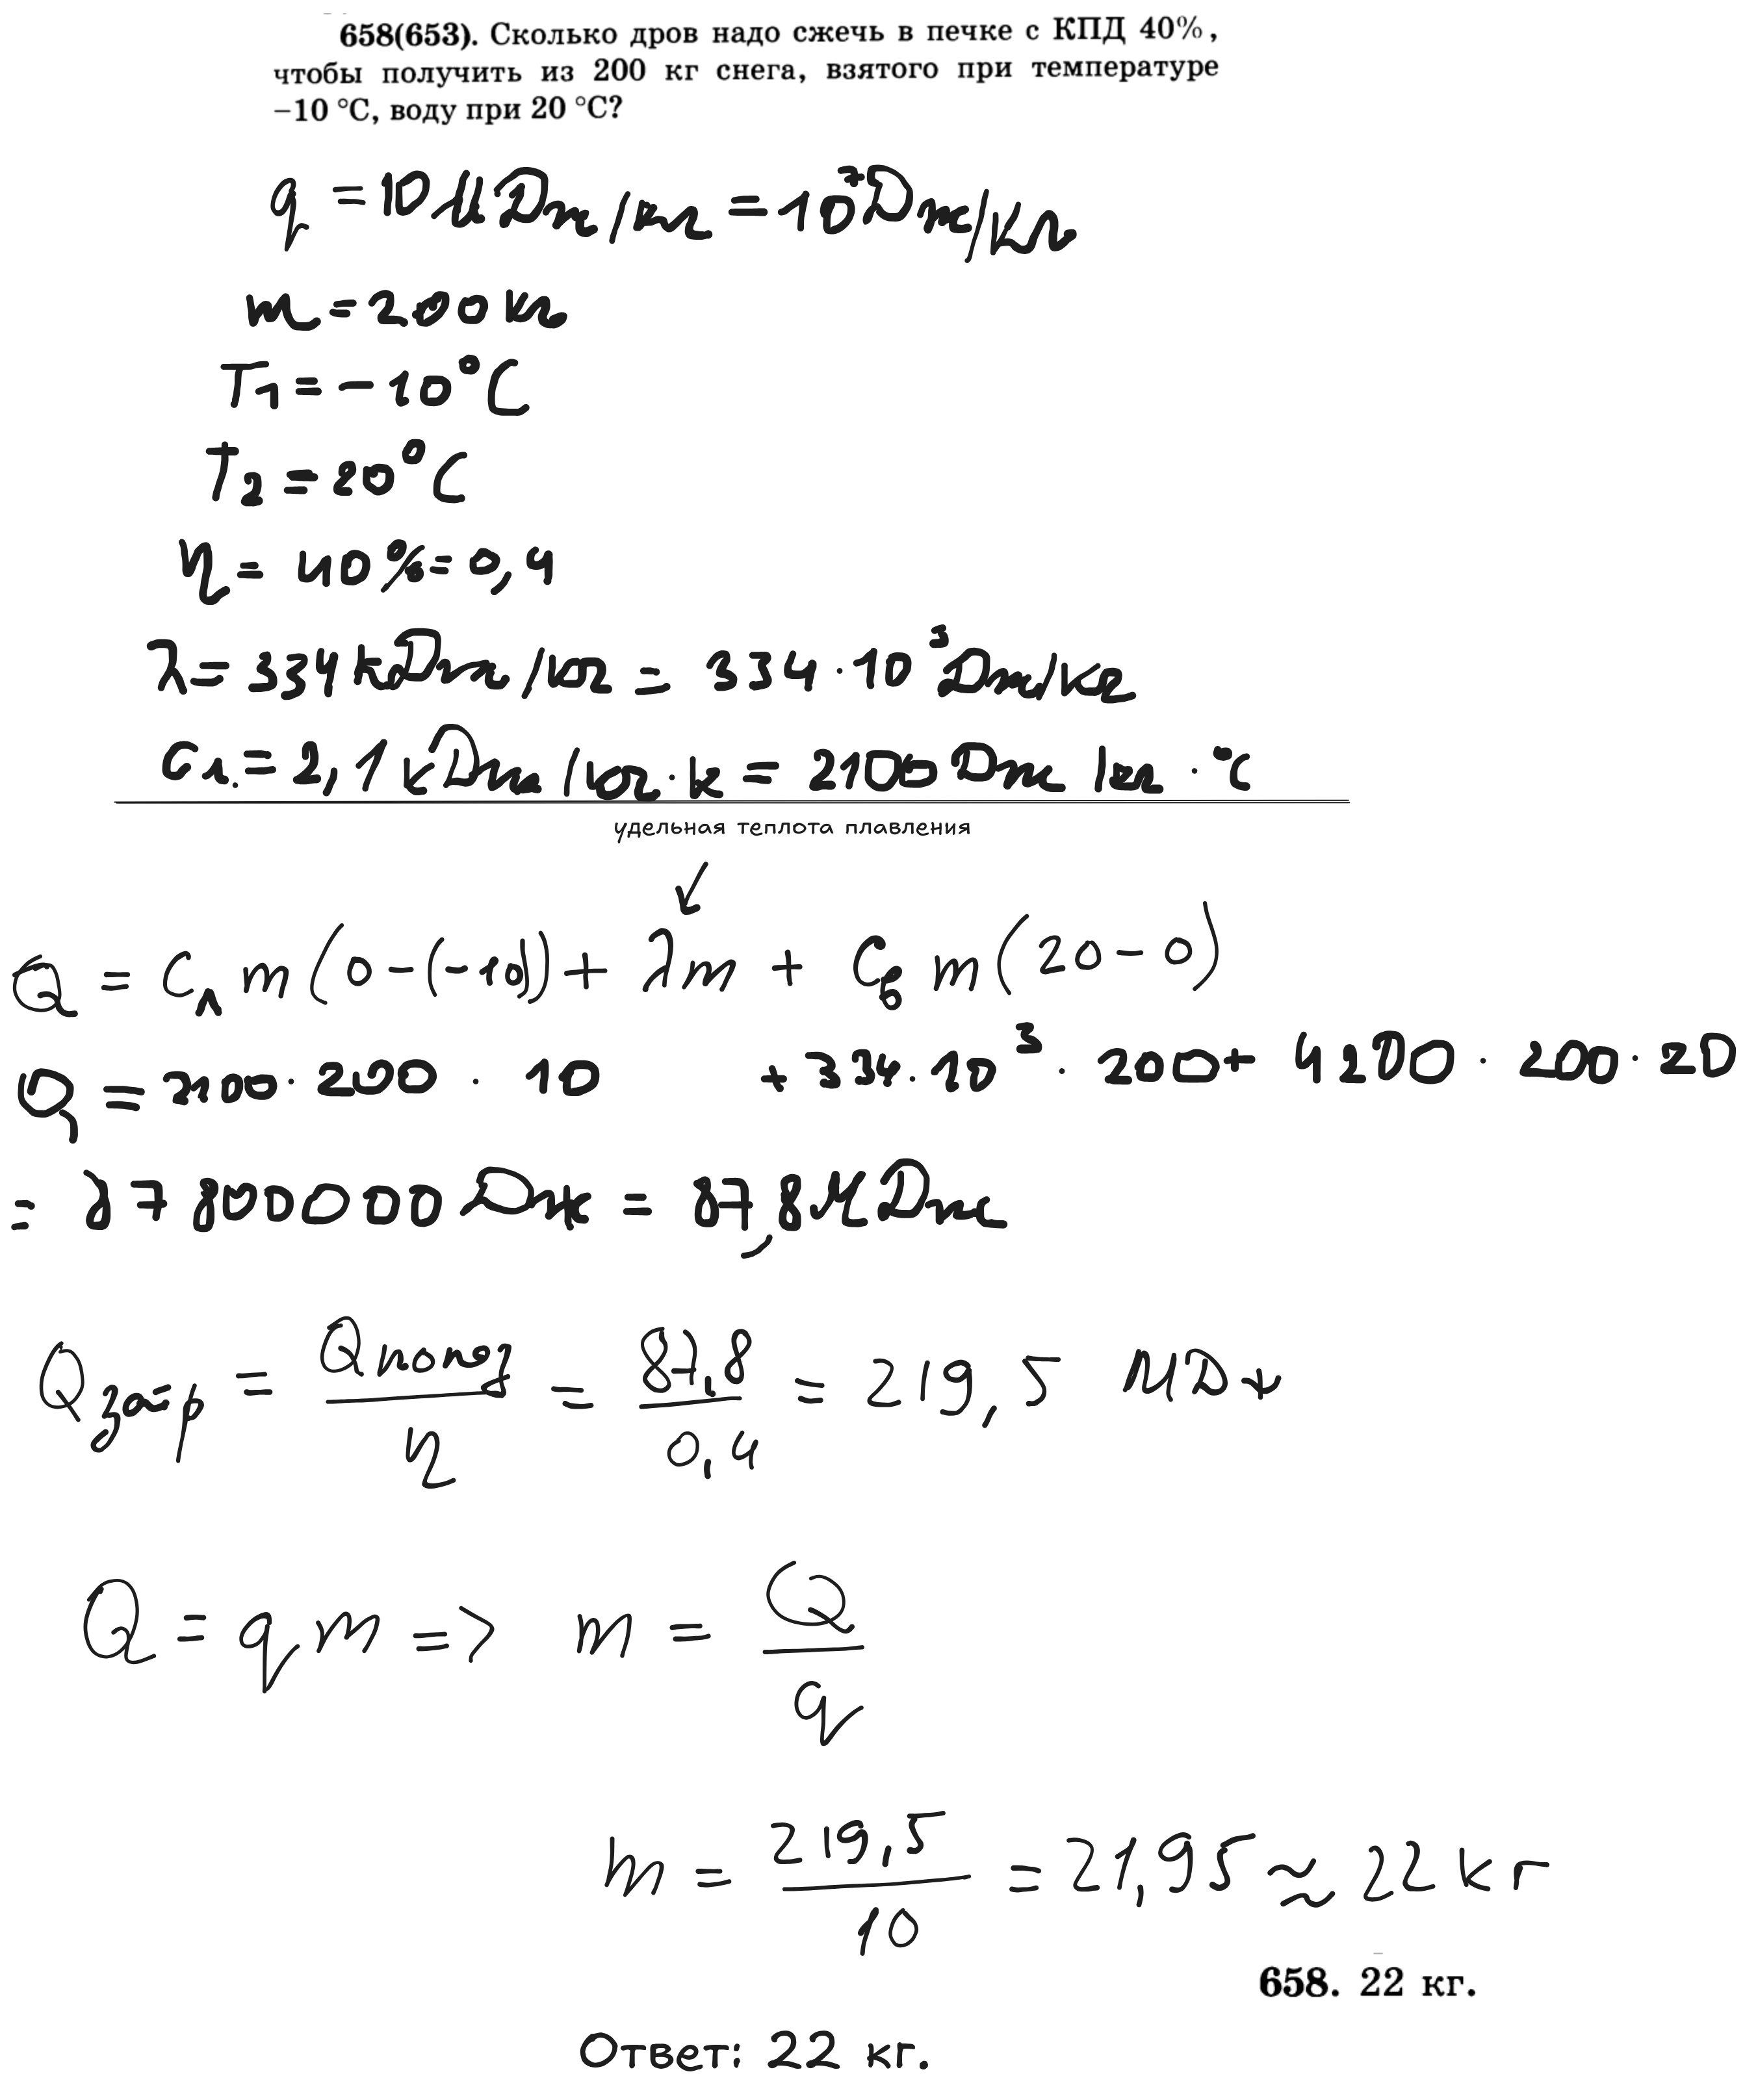 658(653). Сколько дров надо сжечь в печке с КПД 40%,
чтобы получить из 200 кг снега, взятого при температуре
−10 °С, воду при 20 °С?
q = 10 МДж/кг = 10⁷ Дж/кг
m = 200 кг
T₁ = −10°C
T₂ = 20°C
η = 40% = 0,4
λ = 334 кДж/кг = 334·10³ Дж/кг
Cл. = 2,1 кДж/кг·К = 2100 Дж/кг·°C
удельная теплота плавления
↙
Q = Cл m(0−(−10)) + λm + Cв m(20−0)
Q = 2100·200·10 + 334·10³·200 + 4200·200·20
= 87800000 Дж = 87,8 МДж
Qзатр = Qполез/η = 87,8/0,4 = 219,5 МДж
Q = qm => m = Q/q
m = 219,5/10 = 21,95 ≈ 22 кг
658. 22 кг.
Ответ: 22 кг.